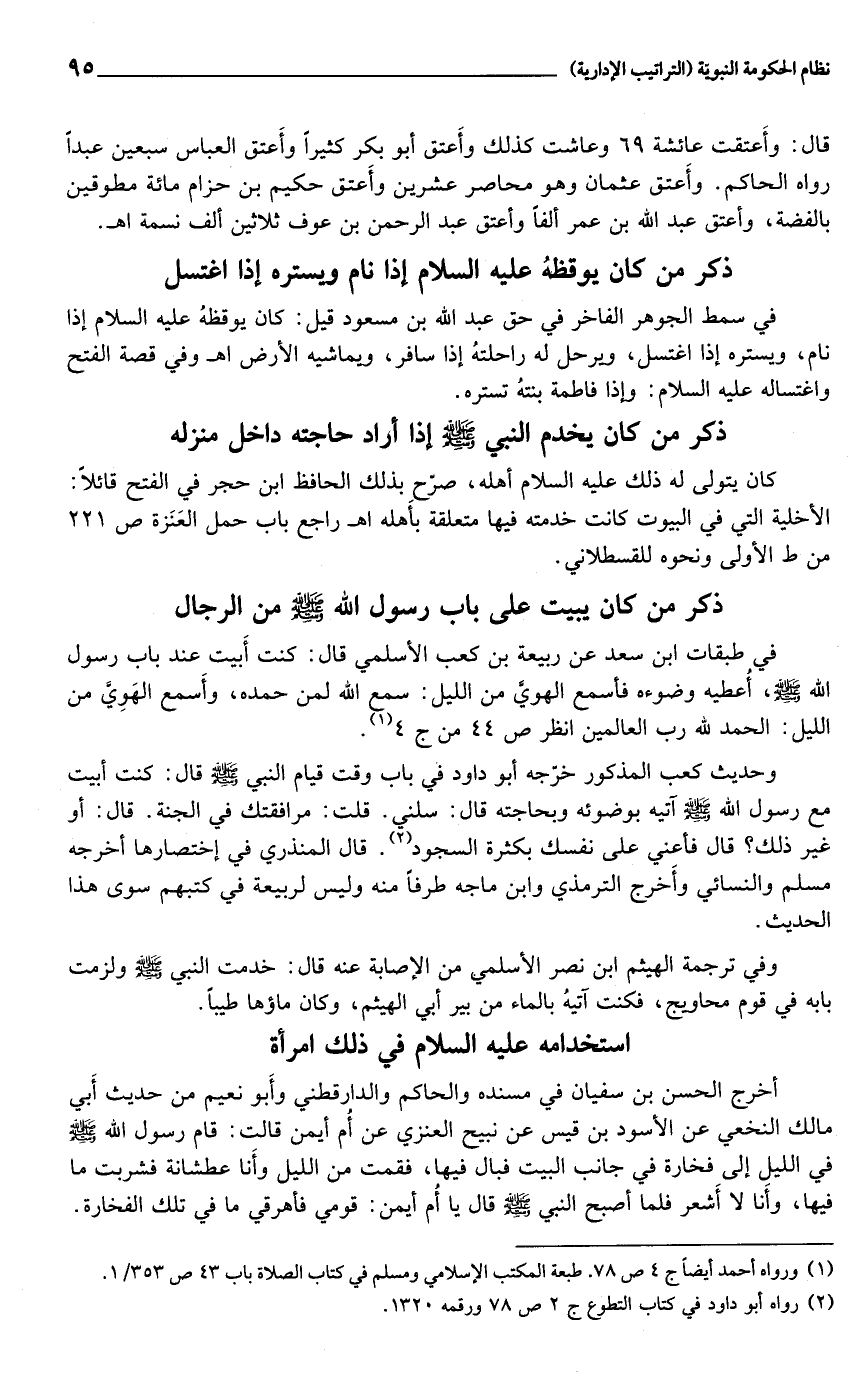 نظام الحكومة النبويّة (التراتيب الإدارية) ٩٥
قال: وأَعتقت عائشة ٦٩ وعاشت كذلك وأَعتق أبو بكر كثيراً وأَعتق العباس سبعين عبداً
رواه الحاكم. وأَعتق عثمان وهو محاصر عشرين وأَعتق حكيم بن حزام مائة مطوقين
بالفضة، وأَعتق عبد الله بن عمر ألفاً وأَعتق عبد الرحمن بن عوف ثلاثين ألف نسمة اهـ.
ذكر من كان يوقظهُ عليه السلام إذا نام ويستره إذا اغتسل
في سمط الجوهر الفاخر في حق عبد الله بن مسعود قيل: كان يوقظهُ عليه السلام إذا
نام، ويستره إذا اغتسل، ويرحل له راحلتهُ إذا سافر، ويماشيه الأرض اهـ وفي قصة الفتح
واغتساله عليه السلام: وإذا فاطمة بنتهُ تستره.
ذكر من كان يخدم النبي ﷺ إذا أراد حاجته داخل منزله
كان يتولى له ذلك عليه السلام أهله، صرّح بذلك الحافظ ابن حجر في الفتح قائلاً:
الأخلية التي في البيوت كانت خدمته فيها متعلقة بأهله اهـ راجع باب حمل العَنَزة ص ٢٢١
من ط الأولى ونحوه للقسطلاني.
ذكر من كان يبيت على باب رسول الله ﷺ من الرجال
في طبقات ابن سعد عن ربيعة بن كعب الأسلمي قال: كنت أَبيت عند باب رسول
الله ﷺ، أُعطيه وضوءه فأسمع الهويَّ من الليل: سمع الله لمن حمده، وأَسمع الهَوِيَّ من
الليل: الحمد لله رب العالمين انظر ص ٤٤ من ج ٤(١).
وحديث كعب المذكور خرّجه أبو داود في باب وقت قيام النبي ﷺ قال: كنت أبيت
مع رسول الله ﷺ آتيه بوضوئه وبحاجته قال: سلني. قلت: مرافقتك في الجنة. قال: أو
غير ذلك؟ قال فأعني على نفسك بكثرة السجود(٢). قال المنذري في إختصارها أخرجه
مسلم والنسائي وأَخرج الترمذي وابن ماجه طرفاً منه وليس لربيعة في كتبهم سوى هذا
الحديث.
وفي ترجمة الهيثم ابن نصر الأسلمي من الإصابة عنه قال: خدمت النبي ﷺ ولزمت
بابه في قوم محاويج، فكنت آتيهُ بالماء من بير أبي الهيثم، وكان ماؤها طيباً.
استخدامه عليه السلام في ذلك امرأة
أخرج الحسن بن سفيان في مسنده والحاكم والدارقطني وأَبو نعيم من حديث أَبي
مالك النخعي عن الأسود بن قيس عن نبيح العنزي عن أُم أيمن قالت: قام رسول الله ﷺ
في الليل إلى فخارة في جانب البيت فبال فيها، فقمت من الليل وأَنا عطشانة فشربت ما
فيها، وأَنا لا أَشعر فلما أصبح النبي ﷺ قال يا أُم أيمن: قومي فأهرقي ما في تلك الفخارة.
(١) ورواه أحمد أيضاً ج ٤ ص ٧٨. طبعة المكتب الإسلامي ومسلم في كتاب الصلاة باب ٤٣ ص ١/٣٥٣.
(٢) رواه أبو داود في كتاب التطوع ج ٢ ص ٧٨ ورقمه ١٣٢٠.